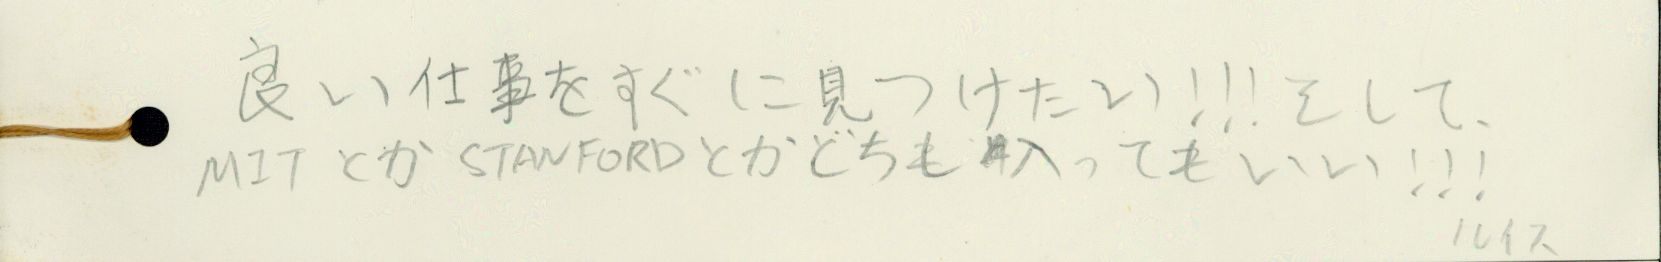 良い仕事をすぐに見つけたい!!!そして、
MITとかSTANFORDとかどちも入ってもいい!!!
ルイス